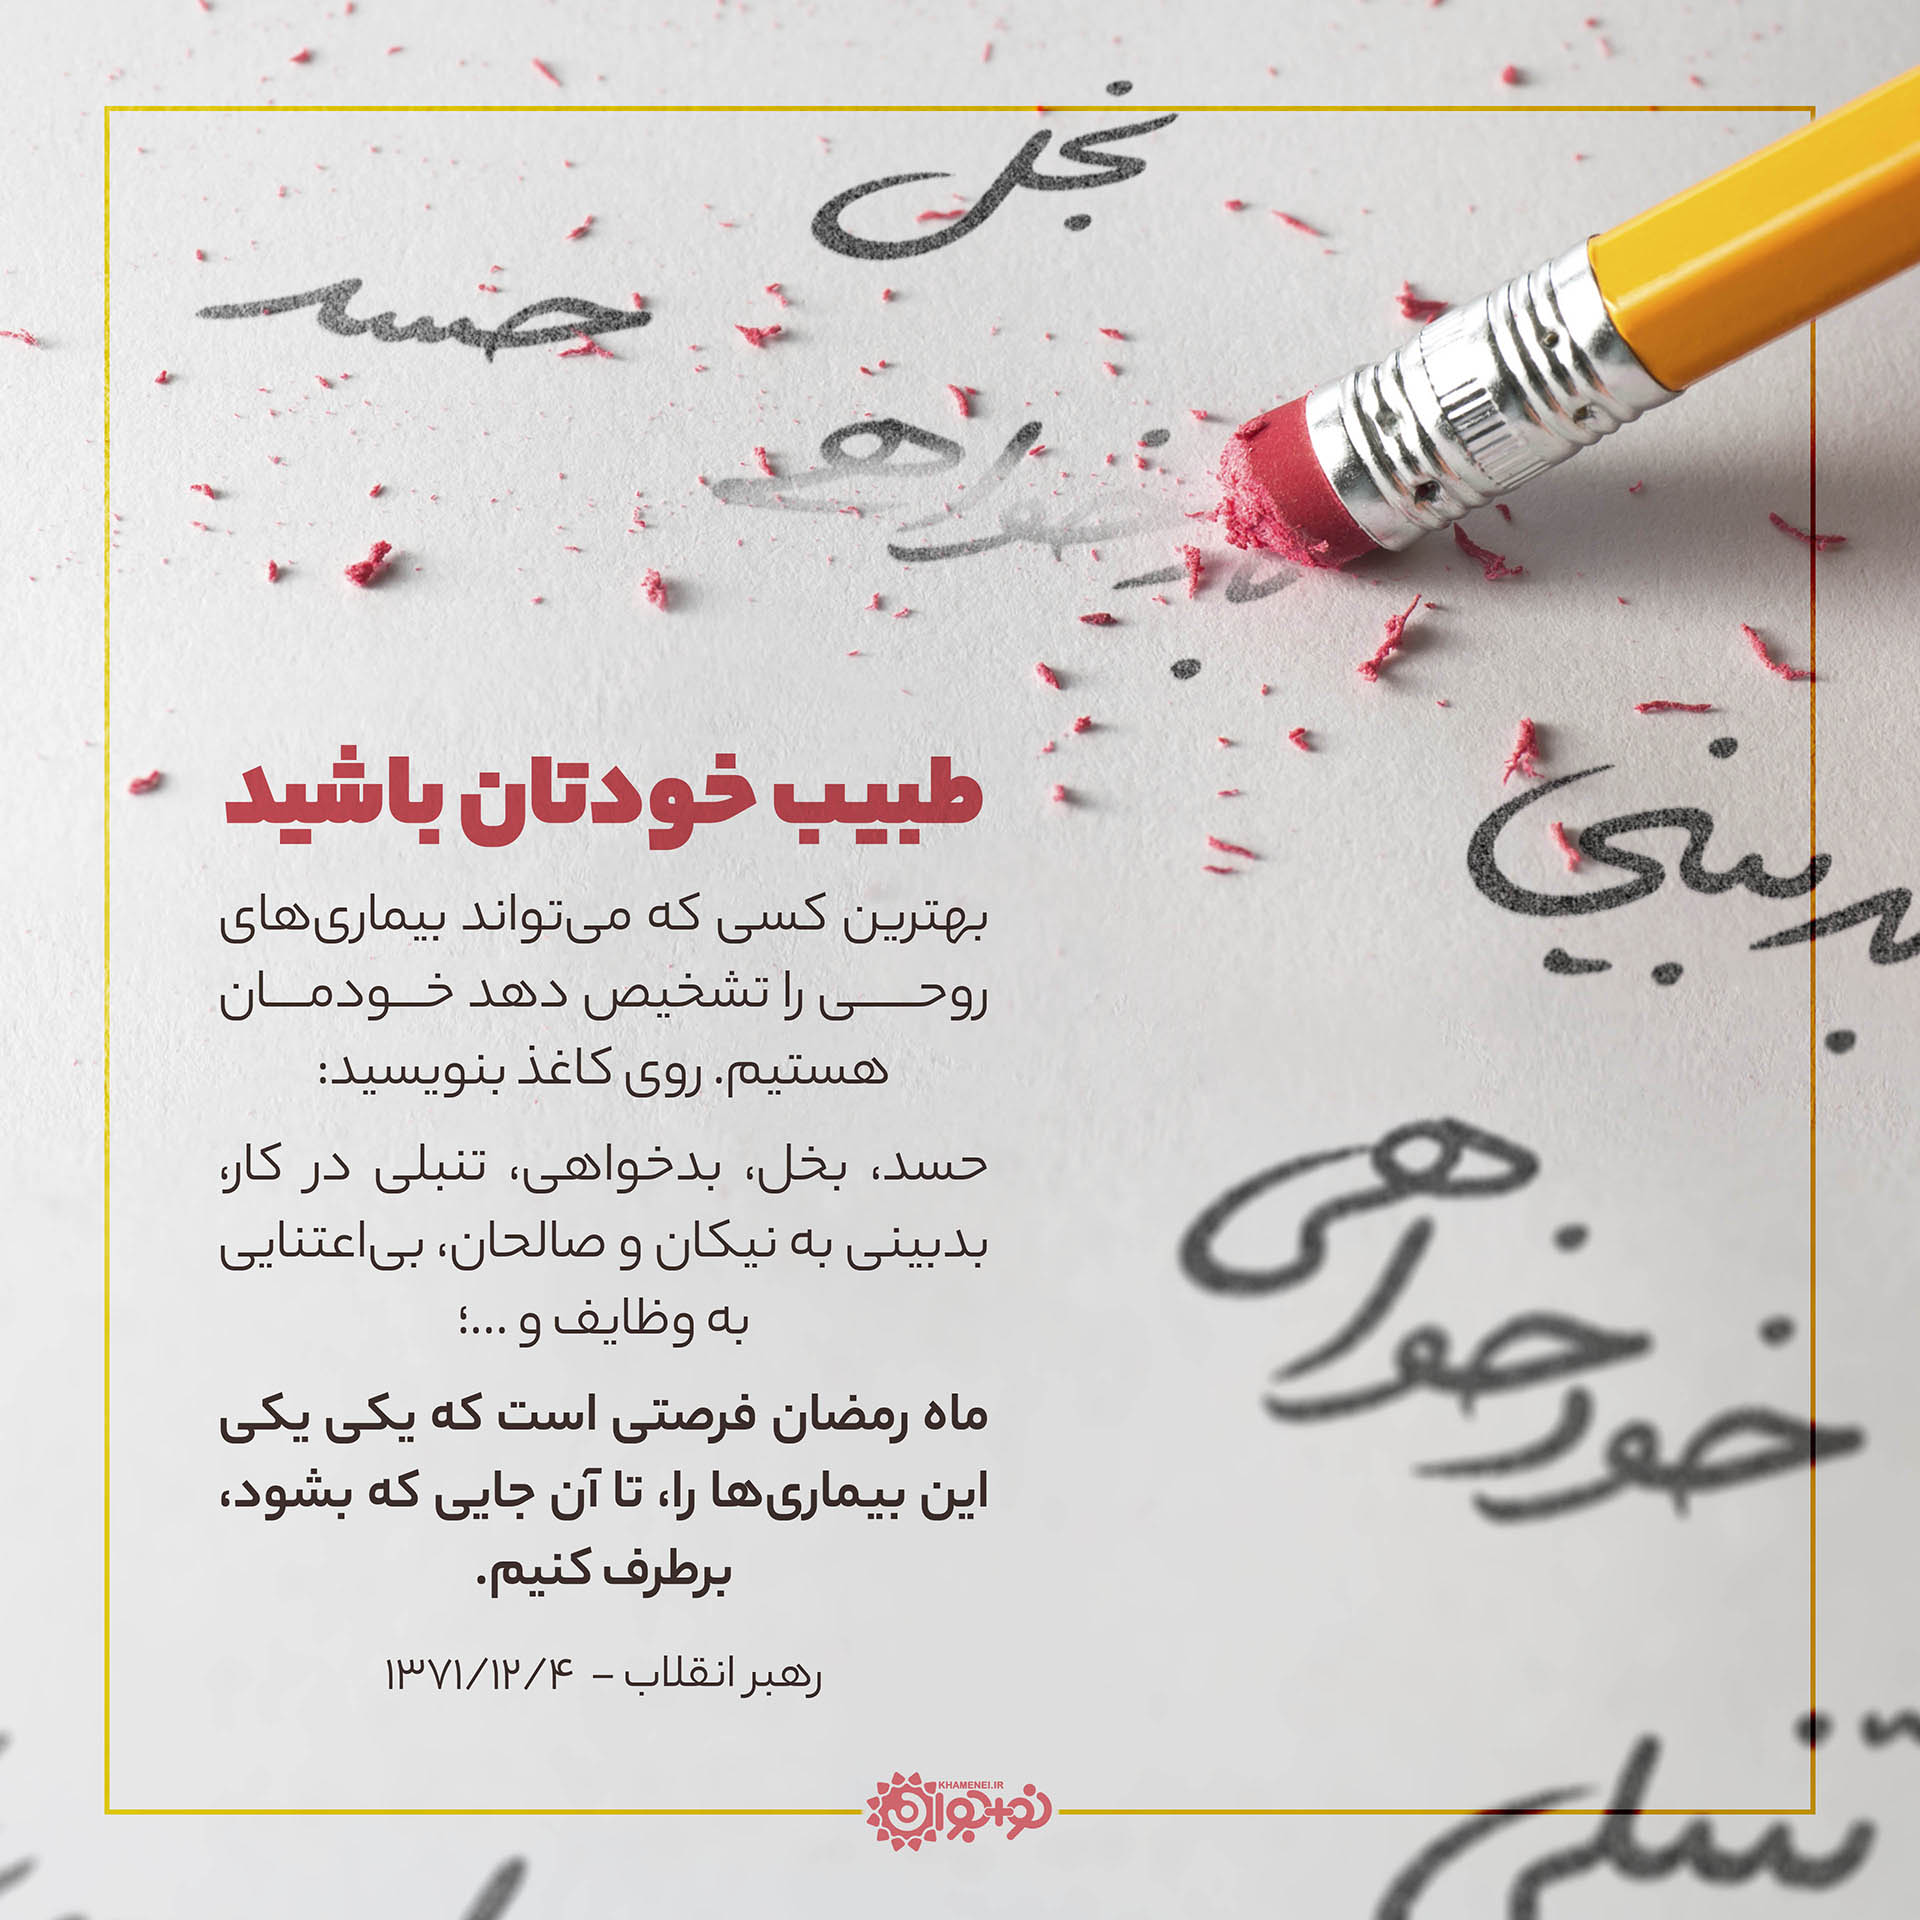 بخل
حسد
بدخواهی
بدبینی
طبیب خودتان باشید
بهترین کسی که می‌تواند بیماری‌های
روحـــی را تشخیص دهد خــودمــان
هستیم. روی کاغذ بنویسید:
حسد، بخل، بدخواهی، تنبلی در کار،
بدبینی به نیکان و صالحان، بی‌اعتنایی
به وظایف و ...؛
خودخواهی
ماه رمضان فرصتی است که یکی یکی
این بیماری‌ها را، تا آن جایی که بشود،
برطرف کنیم.
رهبر انقلاب – ۱۳۷۱/۱۲/۴
تنبلی
KHAMENEI.IR
نو+جوان